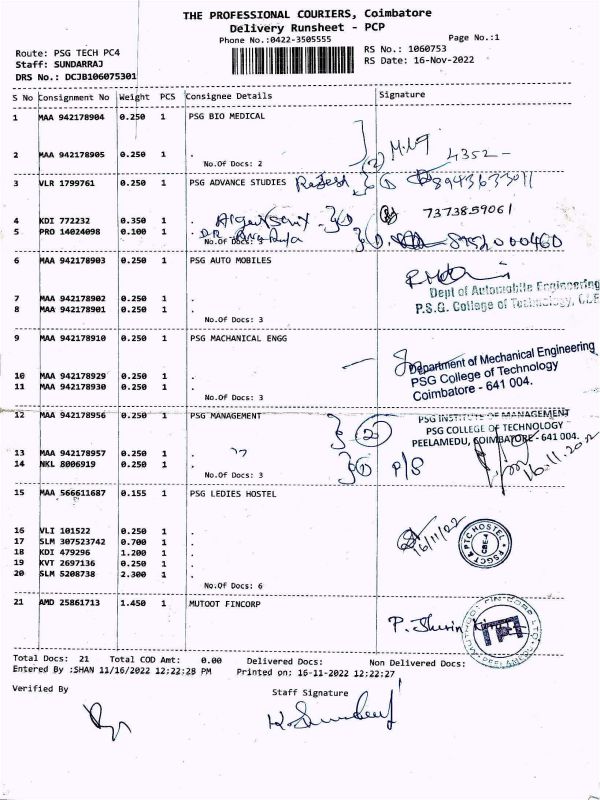 THE PROFESSIONAL COURIERS, Coimbatore
Delivery Runsheet - PCP
Phone No.:0422-3505555
Page No.:1
Route: PSG TECH PC4
RS No.: 1060753
Staff: SUNDARRAJ
RS Date: 16-Nov-2022
DRS No.: DCJB106075301
S No Consignment No Weight PCS Consignee Details Signature
1 MAA 942178904 0.250 1 PSG BIO MEDICAL
2 MAA 942178905 0.250 1 .
4352-
No.Of Docs: 2
3 VLR 1799761 0.250 1 PSG ADVANCE STUDIES Rajesh 8943633011
4 KDI 772232 0.350 1 . 7373859061
5 PRO 14024098 0.100 1 .
No.Of Docs: 3
6 MAA 942178903 0.250 1 PSG AUTO MOBILES
Dept of Automobile Engineering
7 MAA 942178902 0.250 1 .
P.S.G. College of Technology,
8 MAA 942178901 0.250 1 .
No.Of Docs: 3
9 MAA 942178910 0.250 1 PSG MACHANICAL ENGG
Department of Mechanical Engineering
PSG College of Technology
Coimbatore - 641 004.
10 MAA 942178929 0.250 1 .
11 MAA 942178930 0.250 1 .
No.Of Docs: 3
12 MAA 942178956 0.250 1 PSG MANAGEMENT 2
PSG INSTITUTE OF MANAGEMENT
PSG COLLEGE OF TECHNOLOGY
PEELAMEDU, COIMBATORE - 641 004.
13 MAA 942178957 0.250 1 .
14 NKL 8006919 0.250 1 . 1 P/S
16.11.2022
No.Of Docs: 3
15 MAA 566611687 0.155 1 PSG LEDIES HOSTEL
16 VLI 101522 0.250 1 .
17 SLM 307523742 0.700 1 .
18 KDI 479296 1.200 1 .
19 KVT 2697136 0.250 1 .
20 SLM 5208738 2.300 1 .
16/11/22
PSGCT & PTC HOSTEL
CBE-4
No.Of Docs: 6
21 AMD 25861713 1.450 1 MUTOOT FINCORP
MUTHOOT FIN CORP LTD.
PEELAMEDU
Total Docs: 21 Total COD Amt: 0.00 Delivered Docs: Non Delivered Docs:
Entered By :SHAN 11/16/2022 12:22:28 PM Printed on: 16-11-2022 12:22:27
Verified By
Staff Signature